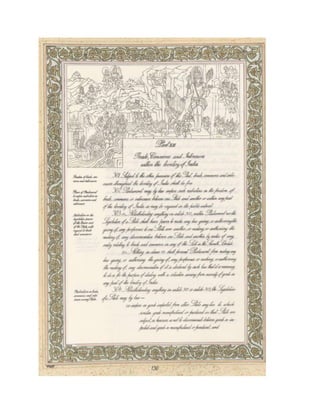 Part XIII
Trade, Commerce and Intercourse
within the territory of India
Freedom of trade, com-
merce and intercourse.
301. Subject to the other provisions of this Part, trade, commerce and inter-
course throughout the territory of India shall be free.
Power of Parliament
to impose restrictions on
trade, commerce and
intercourse.
302. Parliament may by law impose such restrictions on the freedom of
trade, commerce or intercourse between one State and another or within any part
of the territory of India as may be required in the public interest.
Restrictions on the
legislative powers
of the Union and
of the States with
regard to trade
and commerce.
303. (1) Notwithstanding anything in article 302, neither Parliament nor the
Legislature of a State shall have power to make any law giving, or authorising the
giving of, any preference to one State over another, or making, or authorising the
making of, any discrimination between one State and another, by virtue of any
entry relating to trade and commerce in any of the Lists in the Seventh Schedule.
(2) Nothing in clause (1) shall prevent Parliament from making any
law giving, or authorising the giving of, any preference or making, or authorising
the making of, any discrimination if it is declared by such law that it is necessary
to do so for the purpose of dealing with a situation arising from scarcity of goods in
any part of the territory of India.
Restrictions on trade,
commerce and inter-
course among States.
304. Notwithstanding anything in article 301 or article 303, the Legislature
of a State may by law—
(a) impose on goods imported from other States any tax to which
similar goods manufactured or produced in that State are
subject, so, however, as not to discriminate between goods so im-
ported and goods so manufactured or produced; and
136